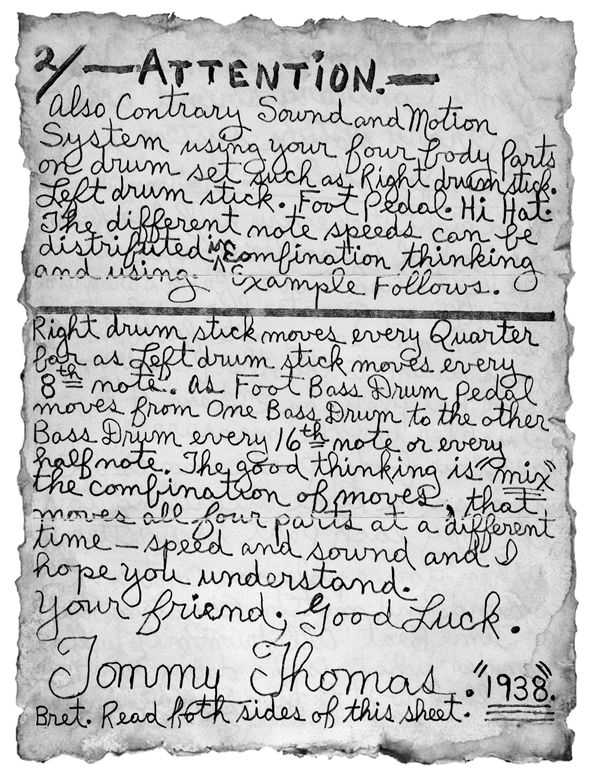 2/ — ATTENTION. —
Also Contrary Sound and Motion
System using your four body parts
on drum set such as, Right drum stick.
Left drum stick. Foot Pedal. Hi Hat.
The different note speeds can be
distributed in combination thinking
and using. Example Follows.
Right drum stick moves every Quarter
bar as Left drum stick moves every
8th note. as Foot Bass Drum Pedal
moves from One Bass Drum to the other
Bass Drum every 16th note or every
half note. The good thinking is "mix"
the combination of moves, that
moves all four parts at a different
time – speed and sound and I
hope you understand.
Your friend; Good Luck.
Tommy Thomas. "1938".
Bret. Read both sides of this sheet.